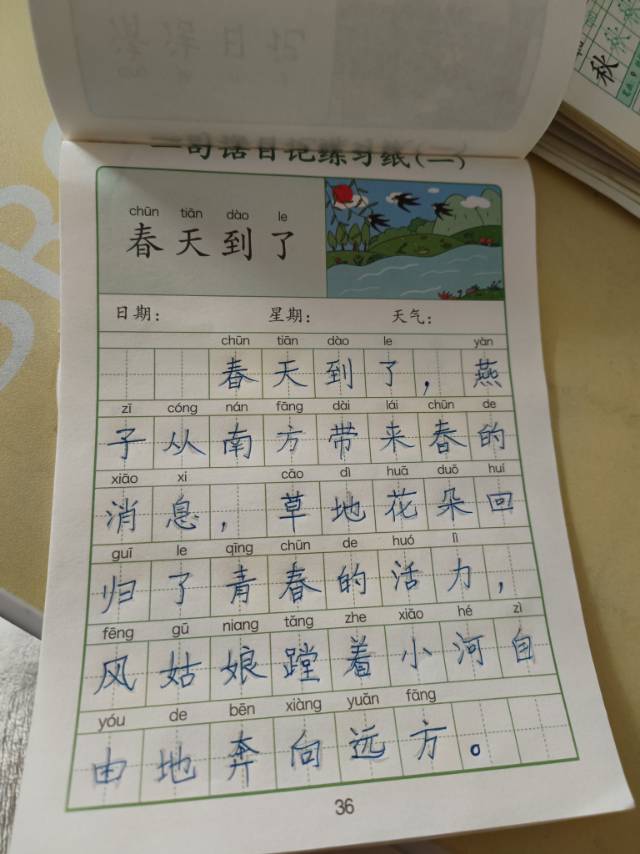 一句话日记练习纸(二)
chūn tiān dào le
春天到了
日期： 星期： 天气：
chūn tiān dào le yàn
春天到了，燕
zǐ cóng nán fāng dài lái chūn de
子从南方带来春的
xiāo xi cǎo dì huā duǒ huí
消息，草地花朵回
guī le qīng chūn de huó lì
归了青春的活力，
fēng gū niang tāng zhe xiǎo hé zì
风姑娘蹚着小河自
yóu de bēn xiàng yuǎn fāng
由地奔向远方。
36
秋